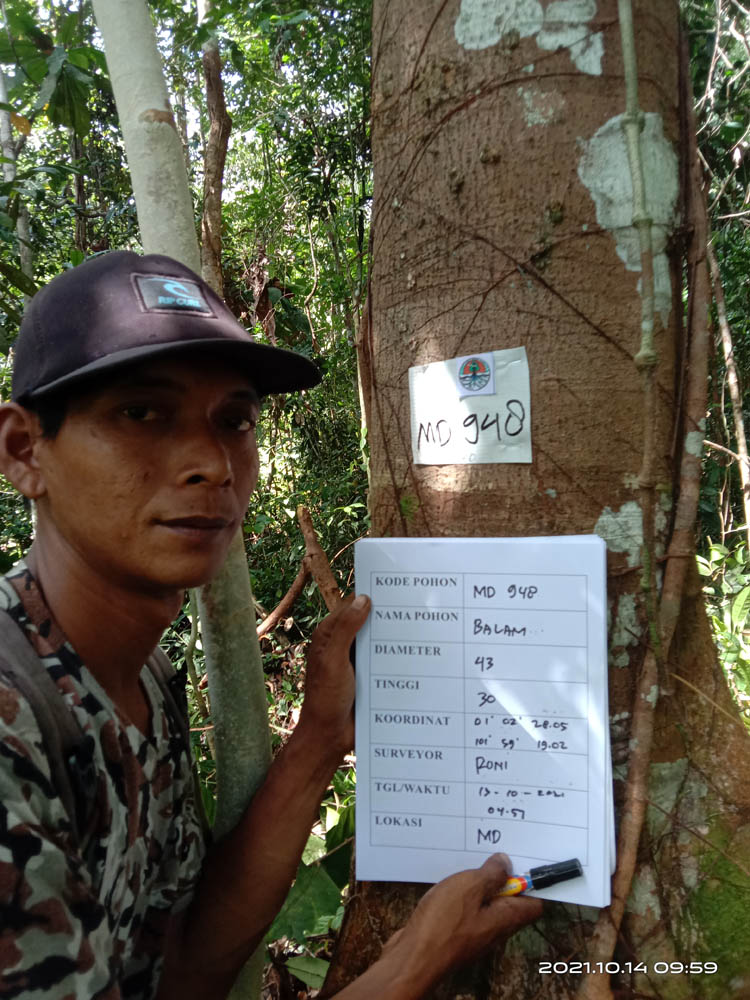 RIP CURL
MD 948
KODE POHON MD 948
NAMA POHON BALAM
DIAMETER 43
TINGGI 30
KOORDINAT 01° 02' 28.05
101° 59' 19.02
SURVEYOR RONI
TGL/WAKTU 13-10-2021
04.57
LOKASI MD
2021.10.14 09:59